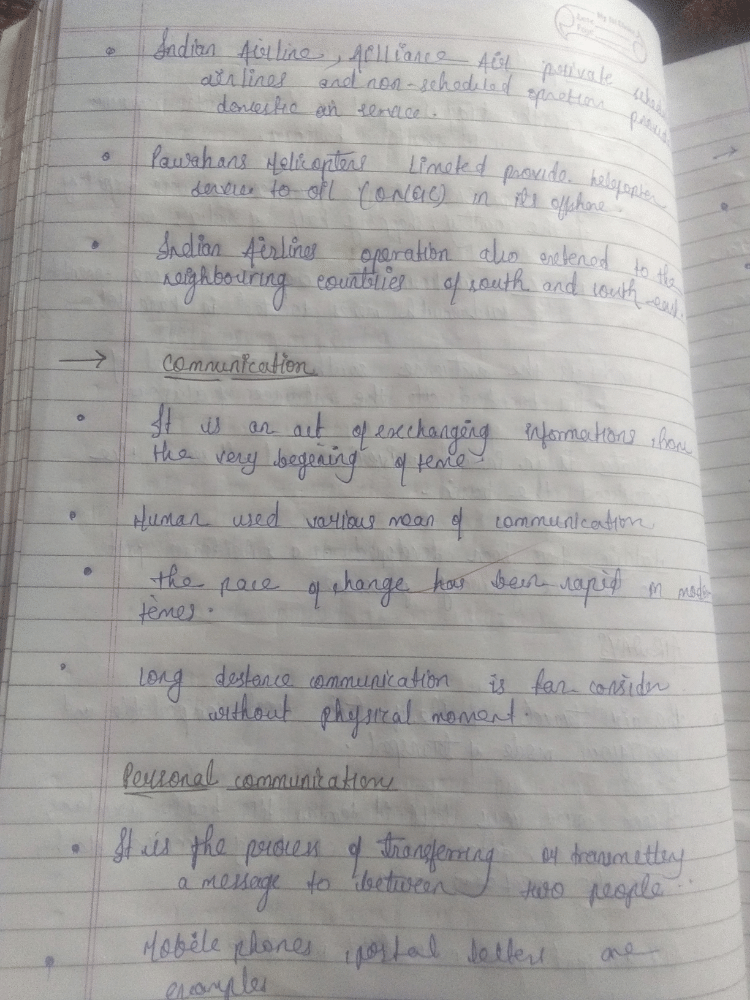 Indian Airline, Aplliance Air private
airlines and non-scheduled opration
domestic air service.
Pawahans Helicopters Limeted provide helepopter
service to oil (ONGC) in its offshore.
Indian Airlines operation also exetened to the
neighbouring countries of south and south-east.
→ Communication
It is an act of excchanging informations from
the very begening of teme.
Human used various mean of communication
the pace of change has been rapid in
temes.
long destence communication is far consider
without physical moment.
Personal communication
It is the process of transferring or transmetteg
a message to between two people.
Mobele phones, postal letters are
examples